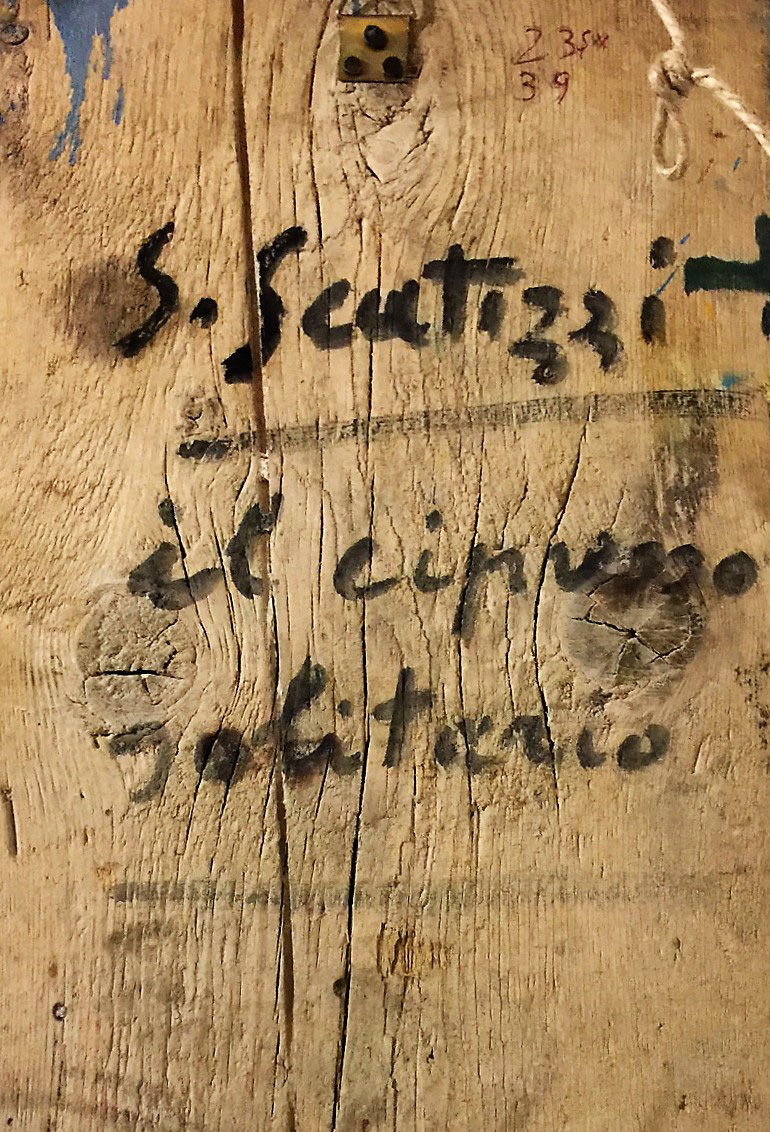 39
S. Scatizzi
il cipresso
solitario